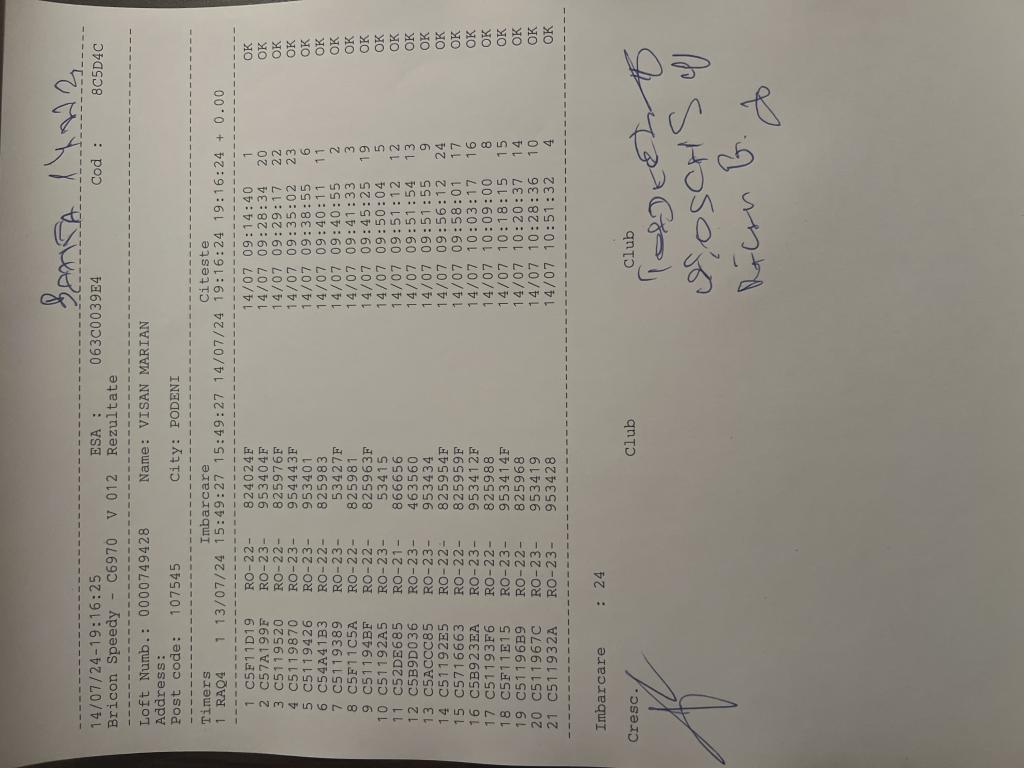 14/07/24-19:16:25 ESA : 063C0039E4 Cod : 8C5D4C
Bricon Speedy - C6970 V 012 Rezultate
Loft Numb.: 0000749428 Name: VISAN MARIAN
Address:
Post code: 107545 City: PODENI
Timers Imbarcare Citeste
1 RAQ4 1 13/07/24 15:49:27 15:49:27 14/07/24 19:16:24 19:16:24 + 0.00
1 C5F11D19 RO-22- 824024F 14/07 09:14:40 1 OK
2 C57A199F RO-23- 953404F 14/07 09:28:34 20 OK
3 C5119520 RO-22- 825976F 14/07 09:29:17 22 OK
4 C5119870 RO-23- 954443F 14/07 09:35:02 23 OK
5 C5119426 RO-23- 953401 14/07 09:38:55 6 OK
6 C54A41B3 RO-22- 825983 14/07 09:40:11 11 OK
7 C5119389 RO-23- 53427F 14/07 09:40:55 2 OK
8 C5F11C5A RO-22- 825981 14/07 09:41:33 3 OK
9 C51194BF RO-22- 825963F 14/07 09:45:25 19 OK
10 C51192A5 RO-23- 53415 14/07 09:50:04 5 OK
11 C52DE685 RO-21- 866656 14/07 09:51:12 12 OK
12 C5B9D036 RO-23- 463560 14/07 09:51:54 13 OK
13 C5ACCC85 RO-23- 953434 14/07 09:51:55 9 OK
14 C51192E5 RO-22- 825954F 14/07 09:56:12 24 OK
15 C5716663 RO-22- 825959F 14/07 09:58:01 17 OK
16 C5B923EA RO-23- 953412F 14/07 10:03:17 16 OK
17 C51193F6 RO-22- 825988 14/07 10:09:00 8 OK
18 C5F11E15 RO-23- 953414F 14/07 10:18:15 15 OK
19 C51196B9 RO-22- 825968 14/07 10:20:37 14 OK
20 C511967C RO-23- 953419 14/07 10:28:36 10 OK
21 C511932A RO-23- 953428 14/07 10:51:32 4 OK
Imbarcare : 24
Cresc. Club Club